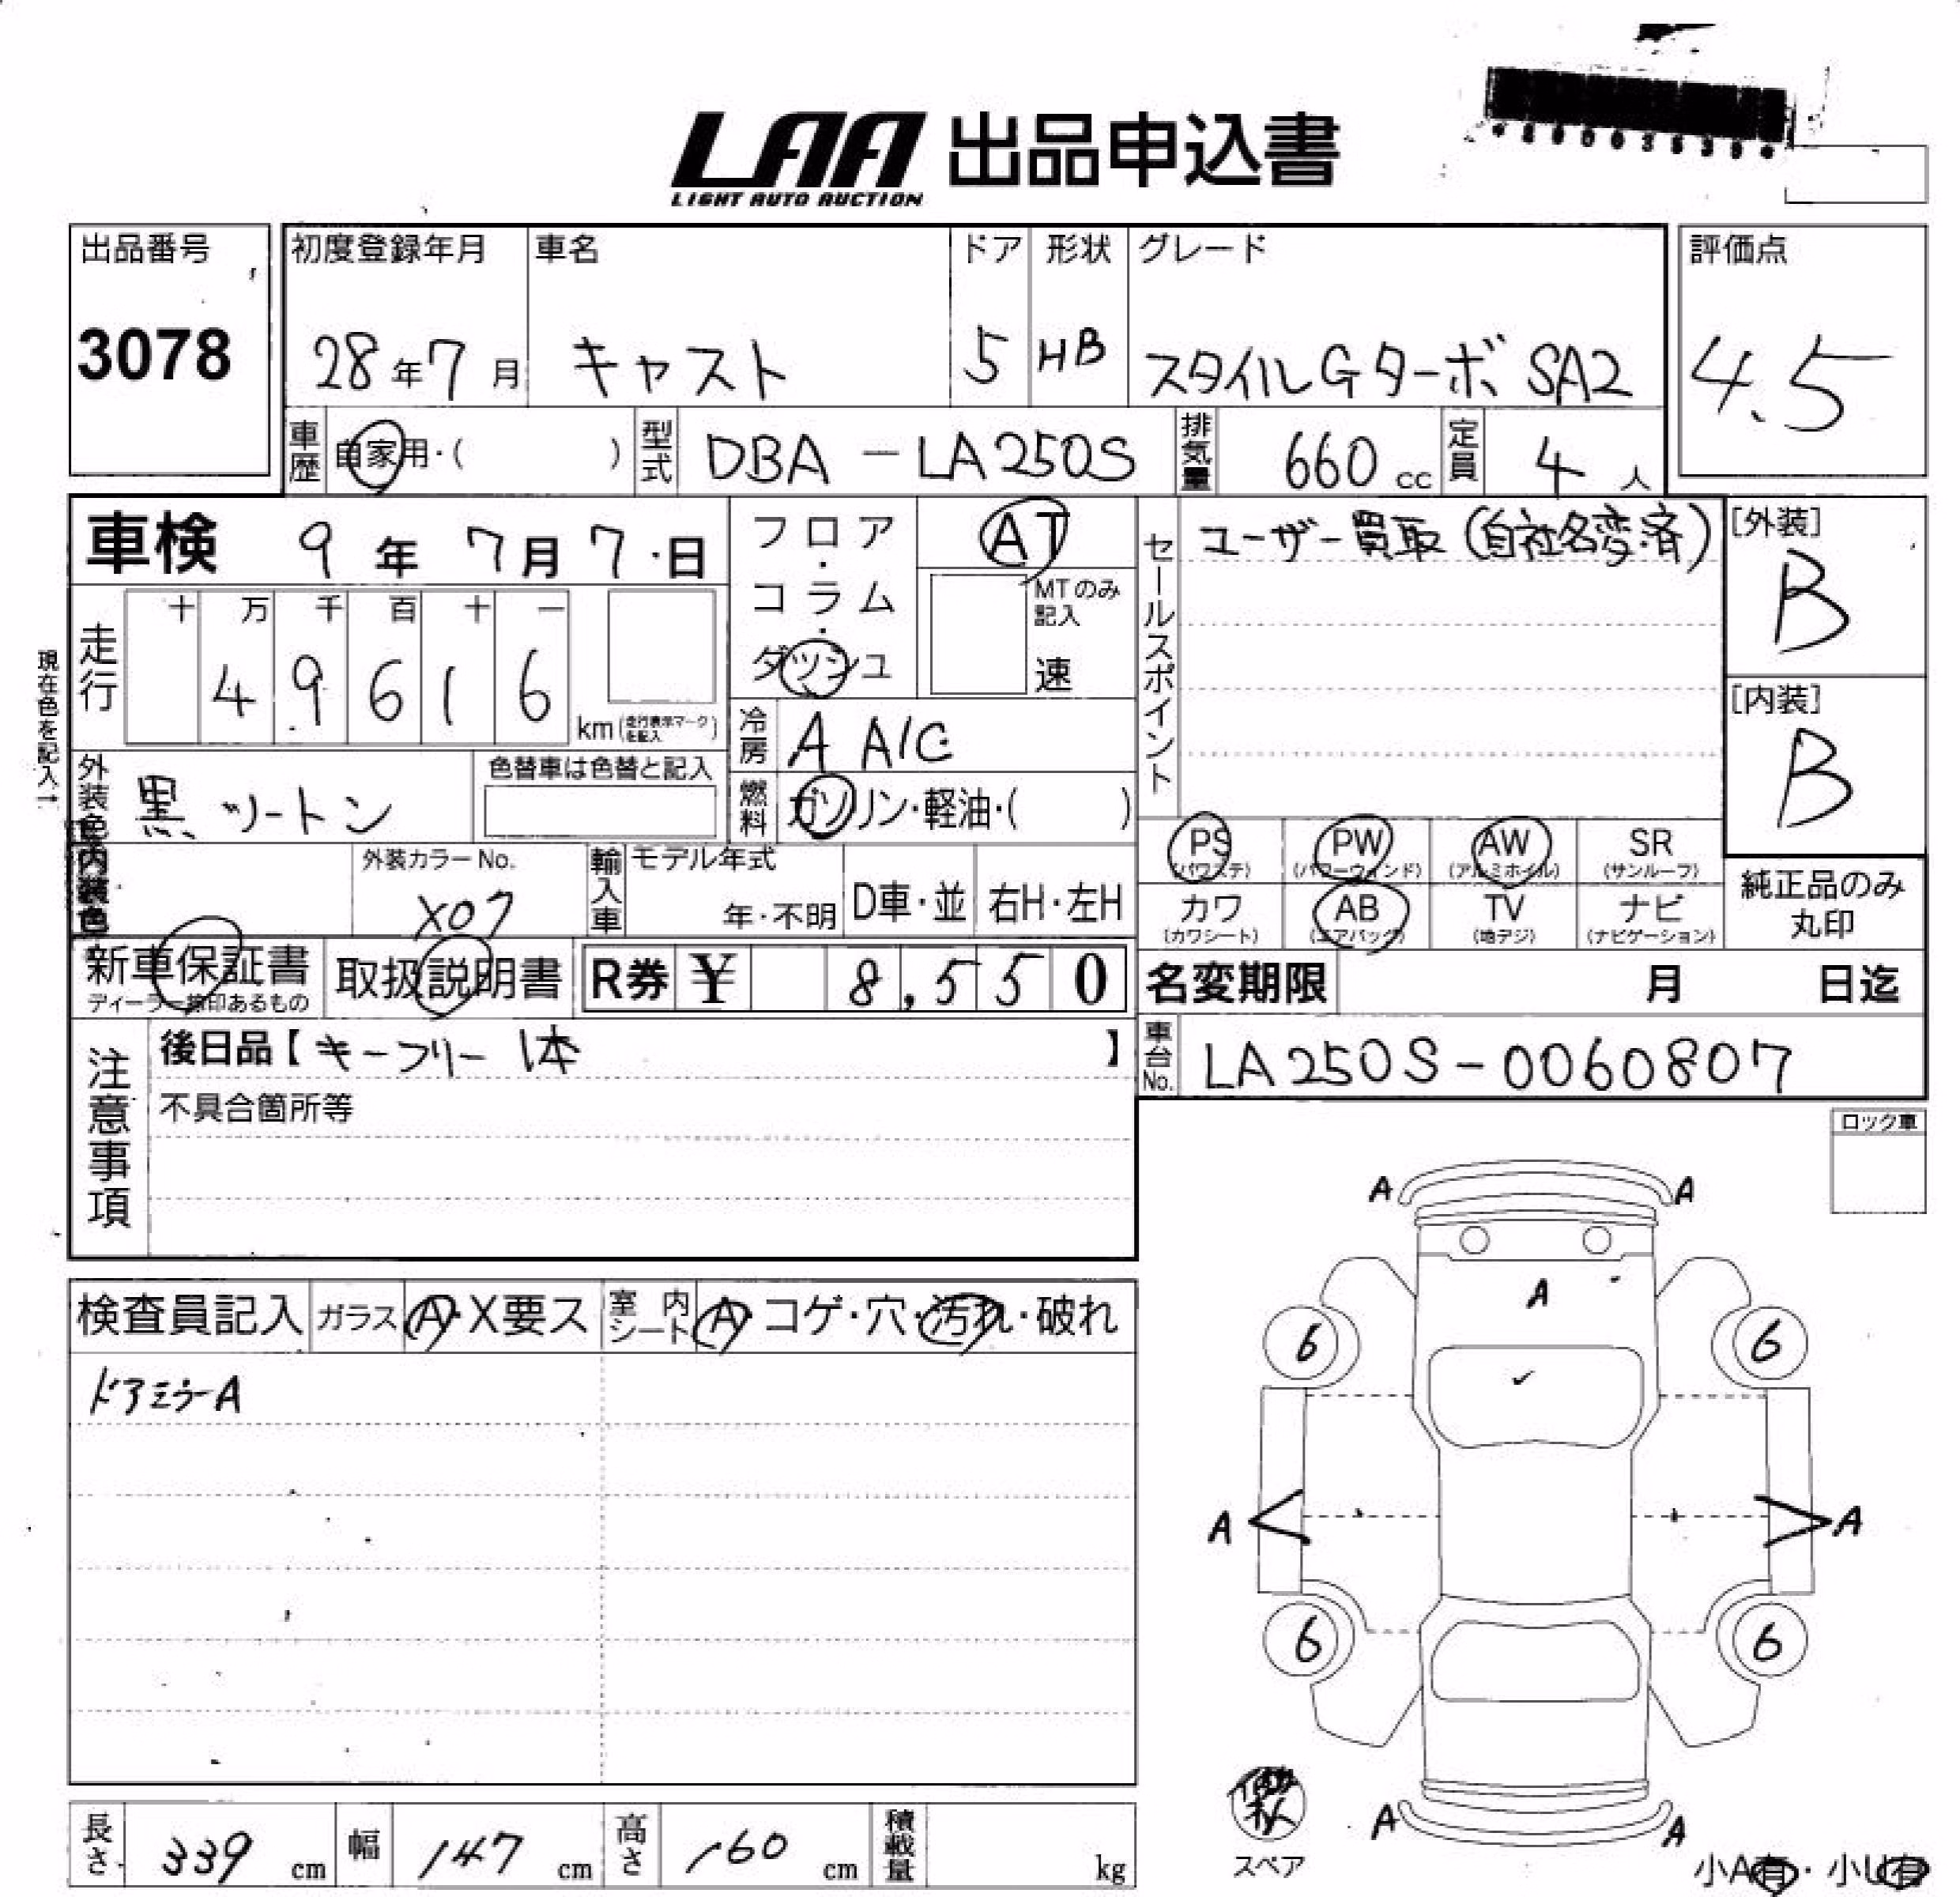 LAA 出品申込書
LIGHT AUTO AUCTION
出品番号
3078
初度登録年月
28年7月
車名
キャスト
ドア
5
形状
HB
グレード
スタイルGターボ SA2
評価点
4.5
車歴
自家用・( )
型式
DBA-LA250S
排気量
660 cc
定員
4人
車検 9年 7月 7日
現在色を記入→
走行
十 万 千 百 十 一
4 9 6 1 6
km(走行表示マークを記入)
フロア・コラム・ダッシュ
AT
MTのみ記入
速
冷房
A A/C
燃料
ガソリン・軽油・( )
外装色
黒ツートン
色替車は色替と記入
内装色
外装カラーNo.
X07
輸入車
モデル年式
年・不明
D車・並
右H・左H
新車保証書
取扱説明書
R券 ¥ 8,550
セールスポイント
ユーザー買取(自社名変済)
[外装]
B
[内装]
B
PS
(パワステ)
PW
(パワーウィンド)
AW
(アルミホイル)
SR
(サンルーフ)
カワ
(カワシート)
AB
(エアバック)
TV
(地デジ)
ナビ
(ナビゲーション)
純正品のみ
丸印
名変期限 月 日迄
車台No.
LA250S-0060807
注意事項
後日品【キーフリー 1本 】
不具合箇所等
ロック車
検査員記入
ガラス
A・X要ス
室内シート
A・コゲ・穴・汚れ・破れ
ドアミラーA
A A
A
6 6
A A
6 6
A A
スペア
小A有・小U有
長さ 339 cm
幅 147 cm
高さ 160 cm
積載量 kg